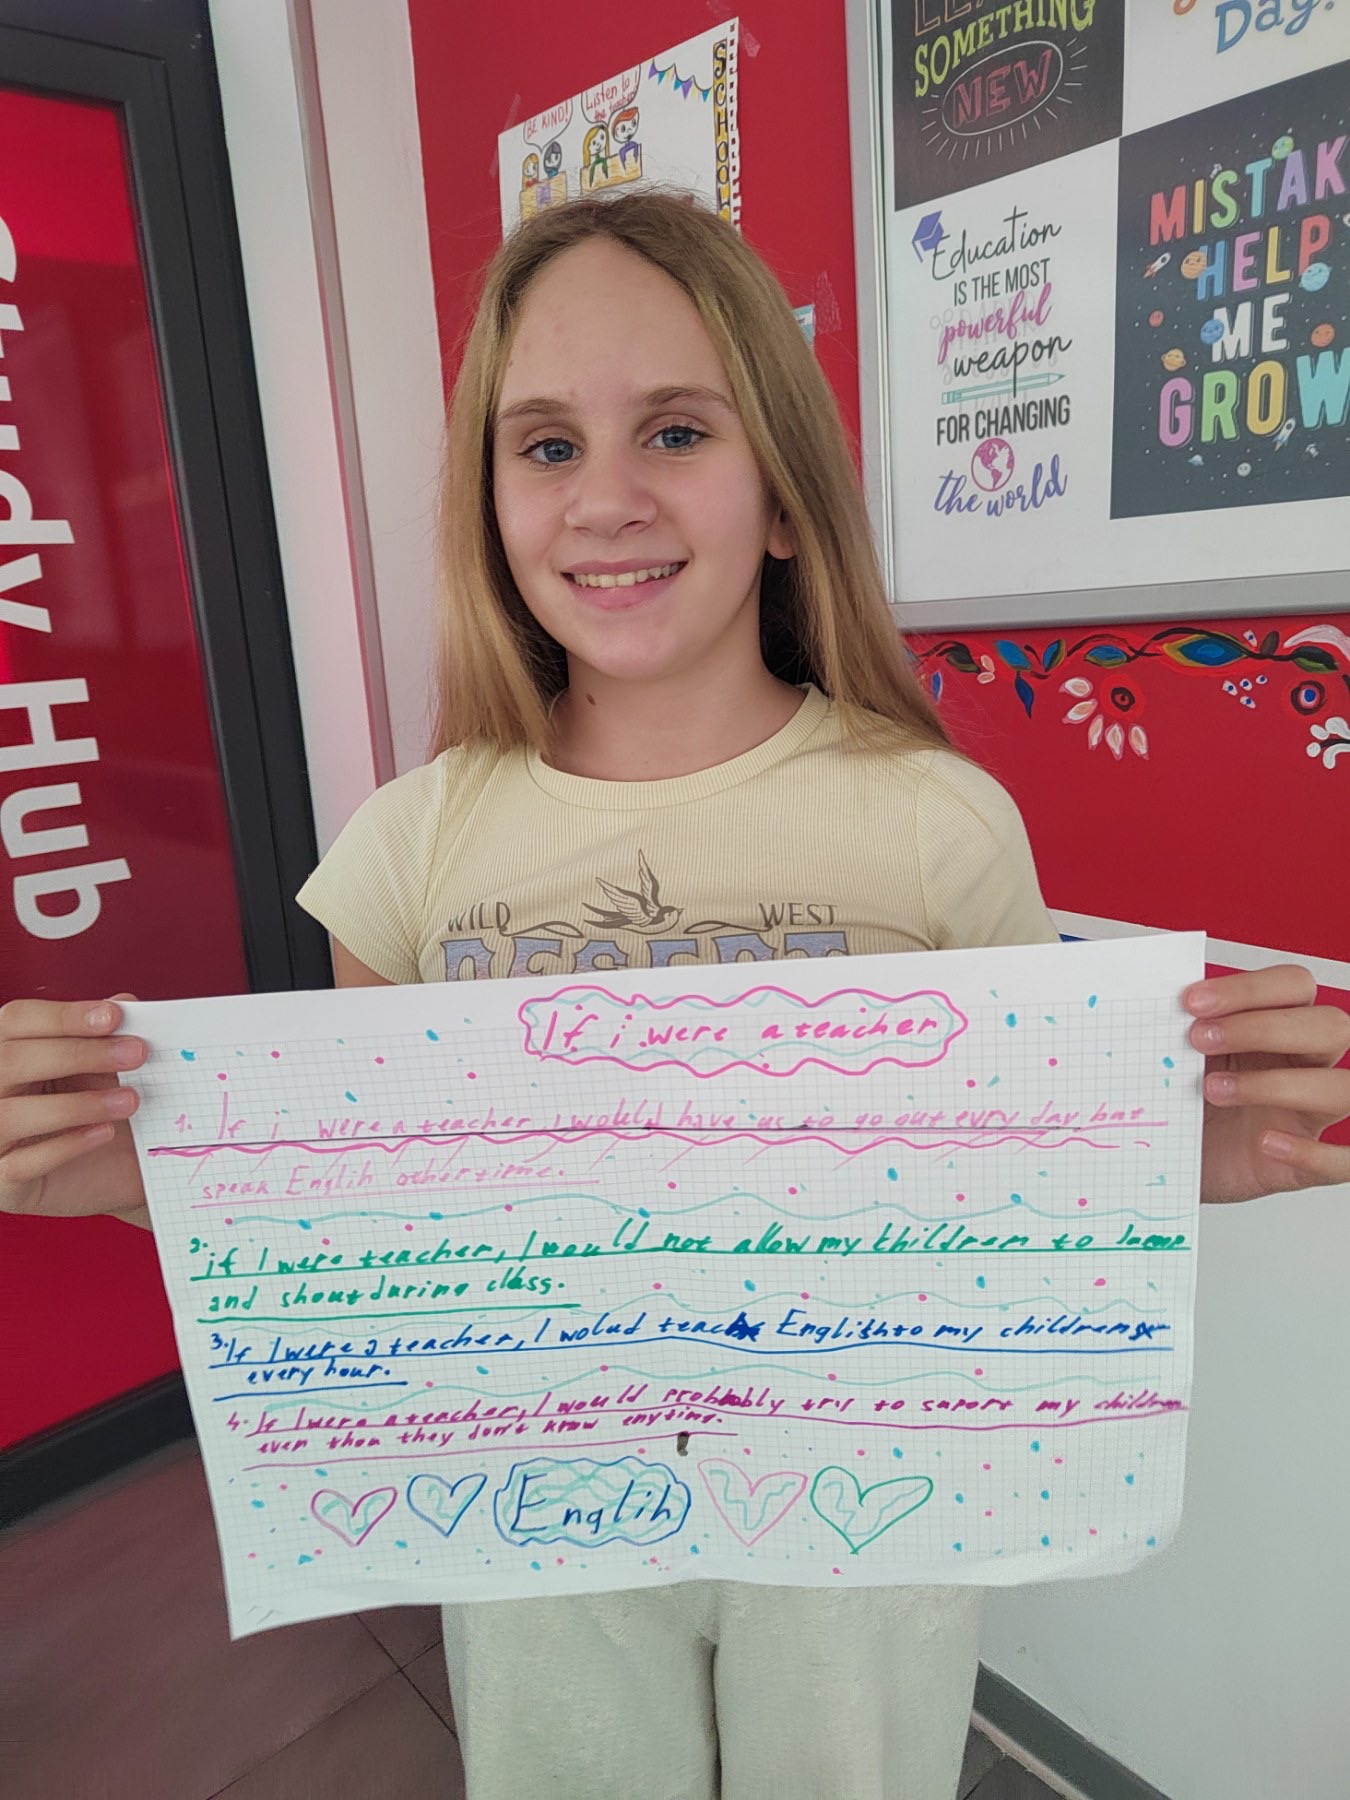 SOMETHING
NEW
Day!
BE KIND!
Listen to
the teacher
SCHOOL
Education
IS THE MOST
powerful
weapon
FOR CHANGING
the world
MISTAK
HELP
ME
GROW
Study Hub
WILD WEST
DESERT
If i were a teacher
1. If i were a teacher, I would have us to go out evry day but
speak Englih other time.
2. if I were teacher, I would not allow my thildrem to
and shout during class.
3. If I were a teacher, I wolud teach English to my childrens
every hour.
4. If I were a teacher, I would probbably try to suport my children
even thou they don't know enyting.
Englih